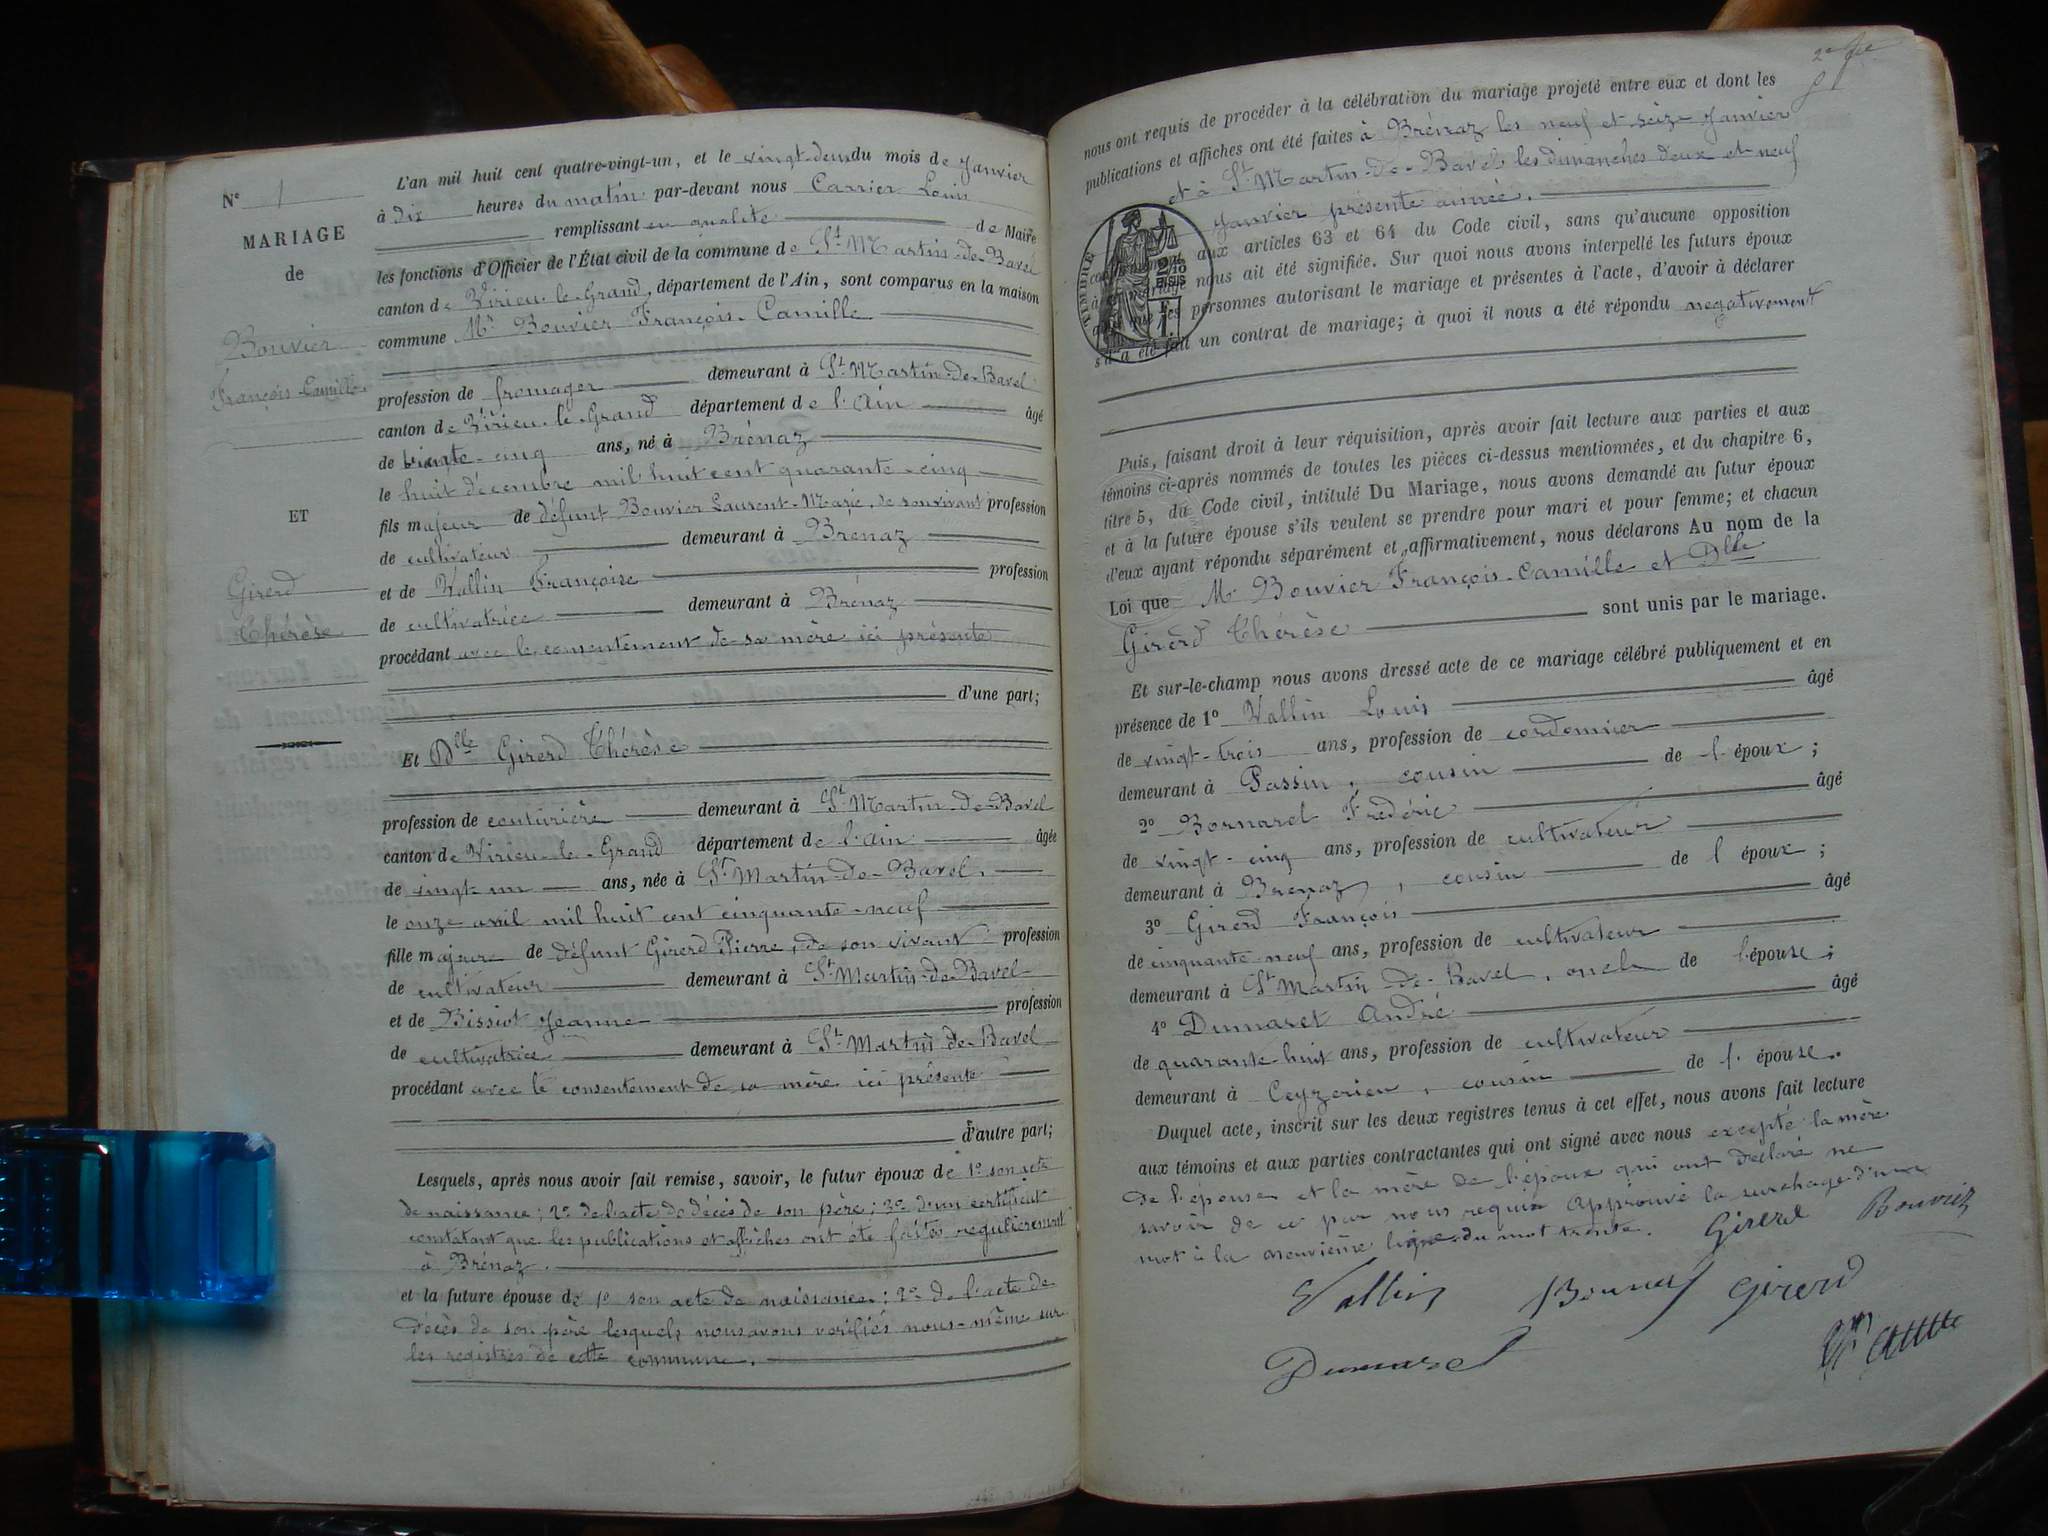 N° 1
MARIAGE
de
Bouvier
François-Camille
ET
Girerd
Thérèse
L'an mil huit cent quatre-vingt-un, et le vingt-deux du mois de Janvier
à dix heures du matin par-devant nous Carrier Louis
remplissant en qualité de Maire
les fonctions d'Officier de l'État civil de la commune de St Martin-de-Bavel
canton de Virieu-le-Grand, département de l'Ain, sont comparus en la maison
commune Mr Bouvier François-Camille
profession de fromager demeurant à St Martin-de-Bavel
canton de Virieu-le-Grand département de l'Ain âgé
de trente-cinq ans, né à Brénaz
le huit décembre mil huit cent quarante-cinq
fils majeur de défunt Bouvier Laurent-Marie, de son vivant profession
de cultivateur demeurant à Brénaz
et de Vallin Françoise profession
de cultivatrice demeurant à Brénaz
procédant avec le consentement de sa mère ici présente
d'une part;
Et Dlle Girerd Thérèse
profession de couturière demeurant à St Martin-de-Bavel
canton de Virieu-le-Grand département de l'Ain âgée
de vingt-un ans, née à St Martin-de-Bavel,
le onze avril mil huit cent cinquante-neuf
fille majeure de défunt Girerd Pierre, de son vivant profession
de cultivateur demeurant à St Martin-de-Bavel
et de Bissiot Jeanne profession
de cultivatrice demeurant à St Martin-de-Bavel
procédant avec le consentement de sa mère ici présente
d'autre part;
Lesquels, après nous avoir fait remise, savoir, le futur époux de 1° son acte
de naissance; 2° de l'acte de décès de son père; 3° d'un certificat
constatant que les publications et affiches ont été faites régulièrement
à Brénaz.
et la future épouse de 1° son acte de naissance; 2° de l'acte de
décès de son père lesquels nous avons vérifiés nous-même sur
les registres de cette commune.
nous ont requis de procéder à la célébration du mariage projeté entre eux et dont les
publications et affiches ont été faites à Brénaz les neuf et seize Janvier
et à St Martin-de-Bavel les dimanches deux et neuf
Janvier présente année.
conformément aux articles 63 et 64 du Code civil, sans qu'aucune opposition
à ce mariage nous ait été signifiée. Sur quoi nous avons interpellé les futurs époux
ainsi que les personnes autorisant le mariage et présentes à l'acte, d'avoir à déclarer
s'il a été fait un contrat de mariage; à quoi il nous a été répondu négativement
TIMBRE
2/10
EN SUS
1 F.
Puis, faisant droit à leur réquisition, après avoir fait lecture aux parties et aux
témoins ci-après nommés de toutes les pièces ci-dessus mentionnées, et du chapitre 6,
titre 5, du Code civil, intitulé Du Mariage, nous avons demandé au futur époux
et à la future épouse s'ils veulent se prendre pour mari et pour femme; et chacun
d'eux ayant répondu séparément et affirmativement, nous déclarons Au nom de la
Loi que Mr Bouvier François-Camille et Dlle
Girerd Thérèse sont unis par le mariage.
Et sur-le-champ nous avons dressé acte de ce mariage célébré publiquement et en
présence de 1° Vallin Louis âgé
de vingt-trois ans, profession de cordonnier
demeurant à Passin, cousin de l'époux;
2° Bornarel Frédéric âgé
de vingt-cinq ans, profession de cultivateur
demeurant à Brénaz, cousin de l'époux;
3° Girerd François âgé
de cinquante-neuf ans, profession de cultivateur
demeurant à St Martin-de-Bavel, oncle de l'épouse;
4° Dumaret André âgé
de quarante-huit ans, profession de cultivateur
demeurant à Ceyzerieu, cousin de l'épouse.
Duquel acte, inscrit sur les deux registres tenus à cet effet, nous avons fait lecture
aux témoins et aux parties contractantes qui ont signé avec nous excepté la mère
de l'épouse et la mère de l'époux qui ont déclaré ne
savoir de ce par nous requis Approuvé la surchage d'un
mot à la neuvième ligne du mot trente. Girerd Bouvier
Vallin Girerd
Dumaret